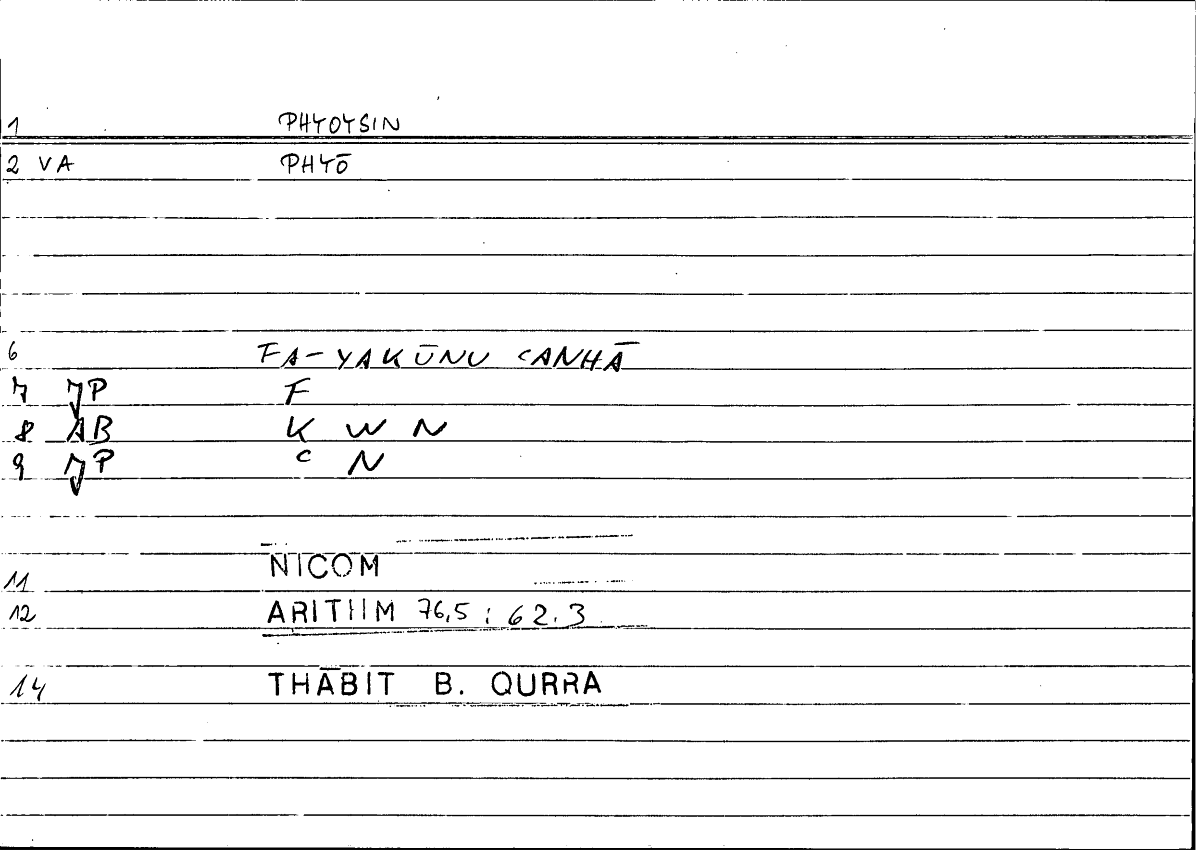 1 PHYOYSIN
2 VA PHYŌ
6 FA-YAKŪNU ʿANHĀ
7 JP F
8 AB K W N
9 JP ʿ N
11 NICOM
12 ARITHM 76,5 : 62.3
14 THĀBIT B. QURRA